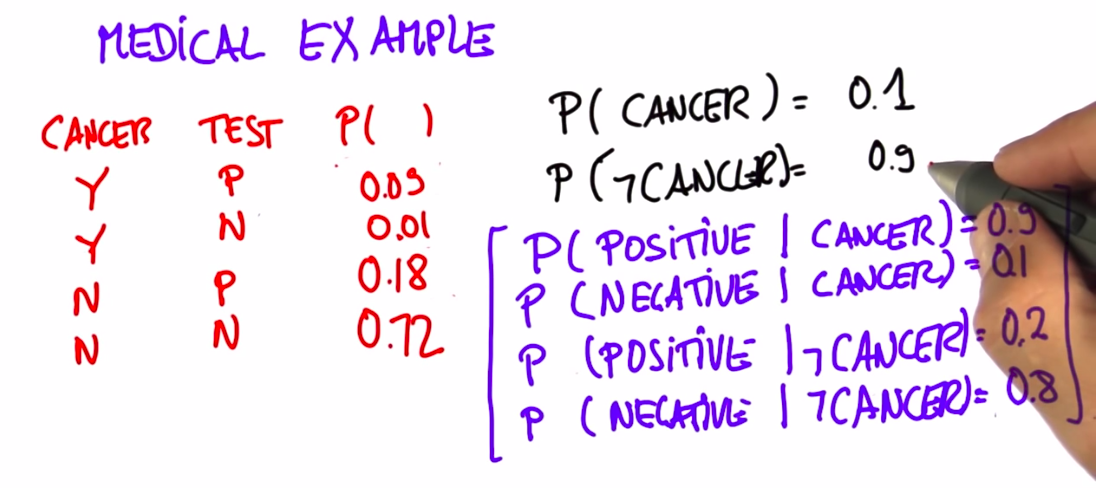 MEDICAL EXAMPLE
CANCER TEST P( )
Y P 0.09
Y N 0.01
N P 0.18
N N 0.72
P( CANCER ) = 0.1
P (¬CANCER)= 0.9
P( POSITIVE | CANCER)= 0.9
P (NEGATIVE | CANCER) = 0.1
P (POSITIVE |¬CANCER)= 0.2
P (NEGATIVE | ¬CANCER)= 0.8